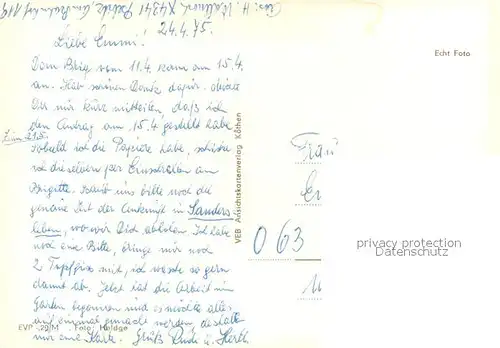 24.4.75.
Liebe Emmi!
Dein Brief vom 11.4. kam am 15.4.
an. Hab meinen Dank dafür. Möchte
Dir nur kurz mitteilen, daß ich
den Antrag am 15.4 gestellt habe
Sobald ich die Papiere habe, schicke
ich dieselben per Einschreiben an
Brigitte. Schreibt uns bitte noch die
genaue Zeit der Ankunft in Sanders
leben, wo wir Dich abholen. Ich habe
noch eine Bitte, bringe mir noch
2 mit, ich so gern
damit ab. Jetzt ist die Arbeit im
Garten begonnen und es möchte alles
auf einmal gemacht werden, deshalb
nur eine Karte. Grüß u.
EVP -,20/M Foto: Holdge
VEB Ansichtskartenverlag Köthen
Echt Foto
Frau
063
privacy protection
Datenschutz